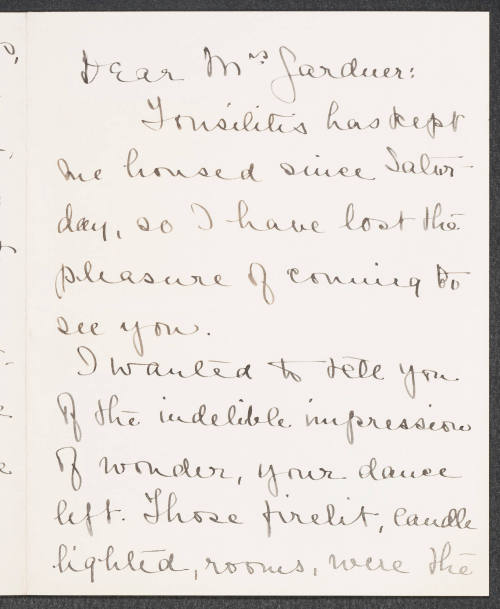 Dear Mrs Gardner:
Tonsilitis has kept
me housed since Satur-
day, so I have lost the
pleasure of coming to
see you.
I wanted to tell you
of the indelible impression
of wonder, your dance
left. Those firelit, candle
lighted, rooms, were the